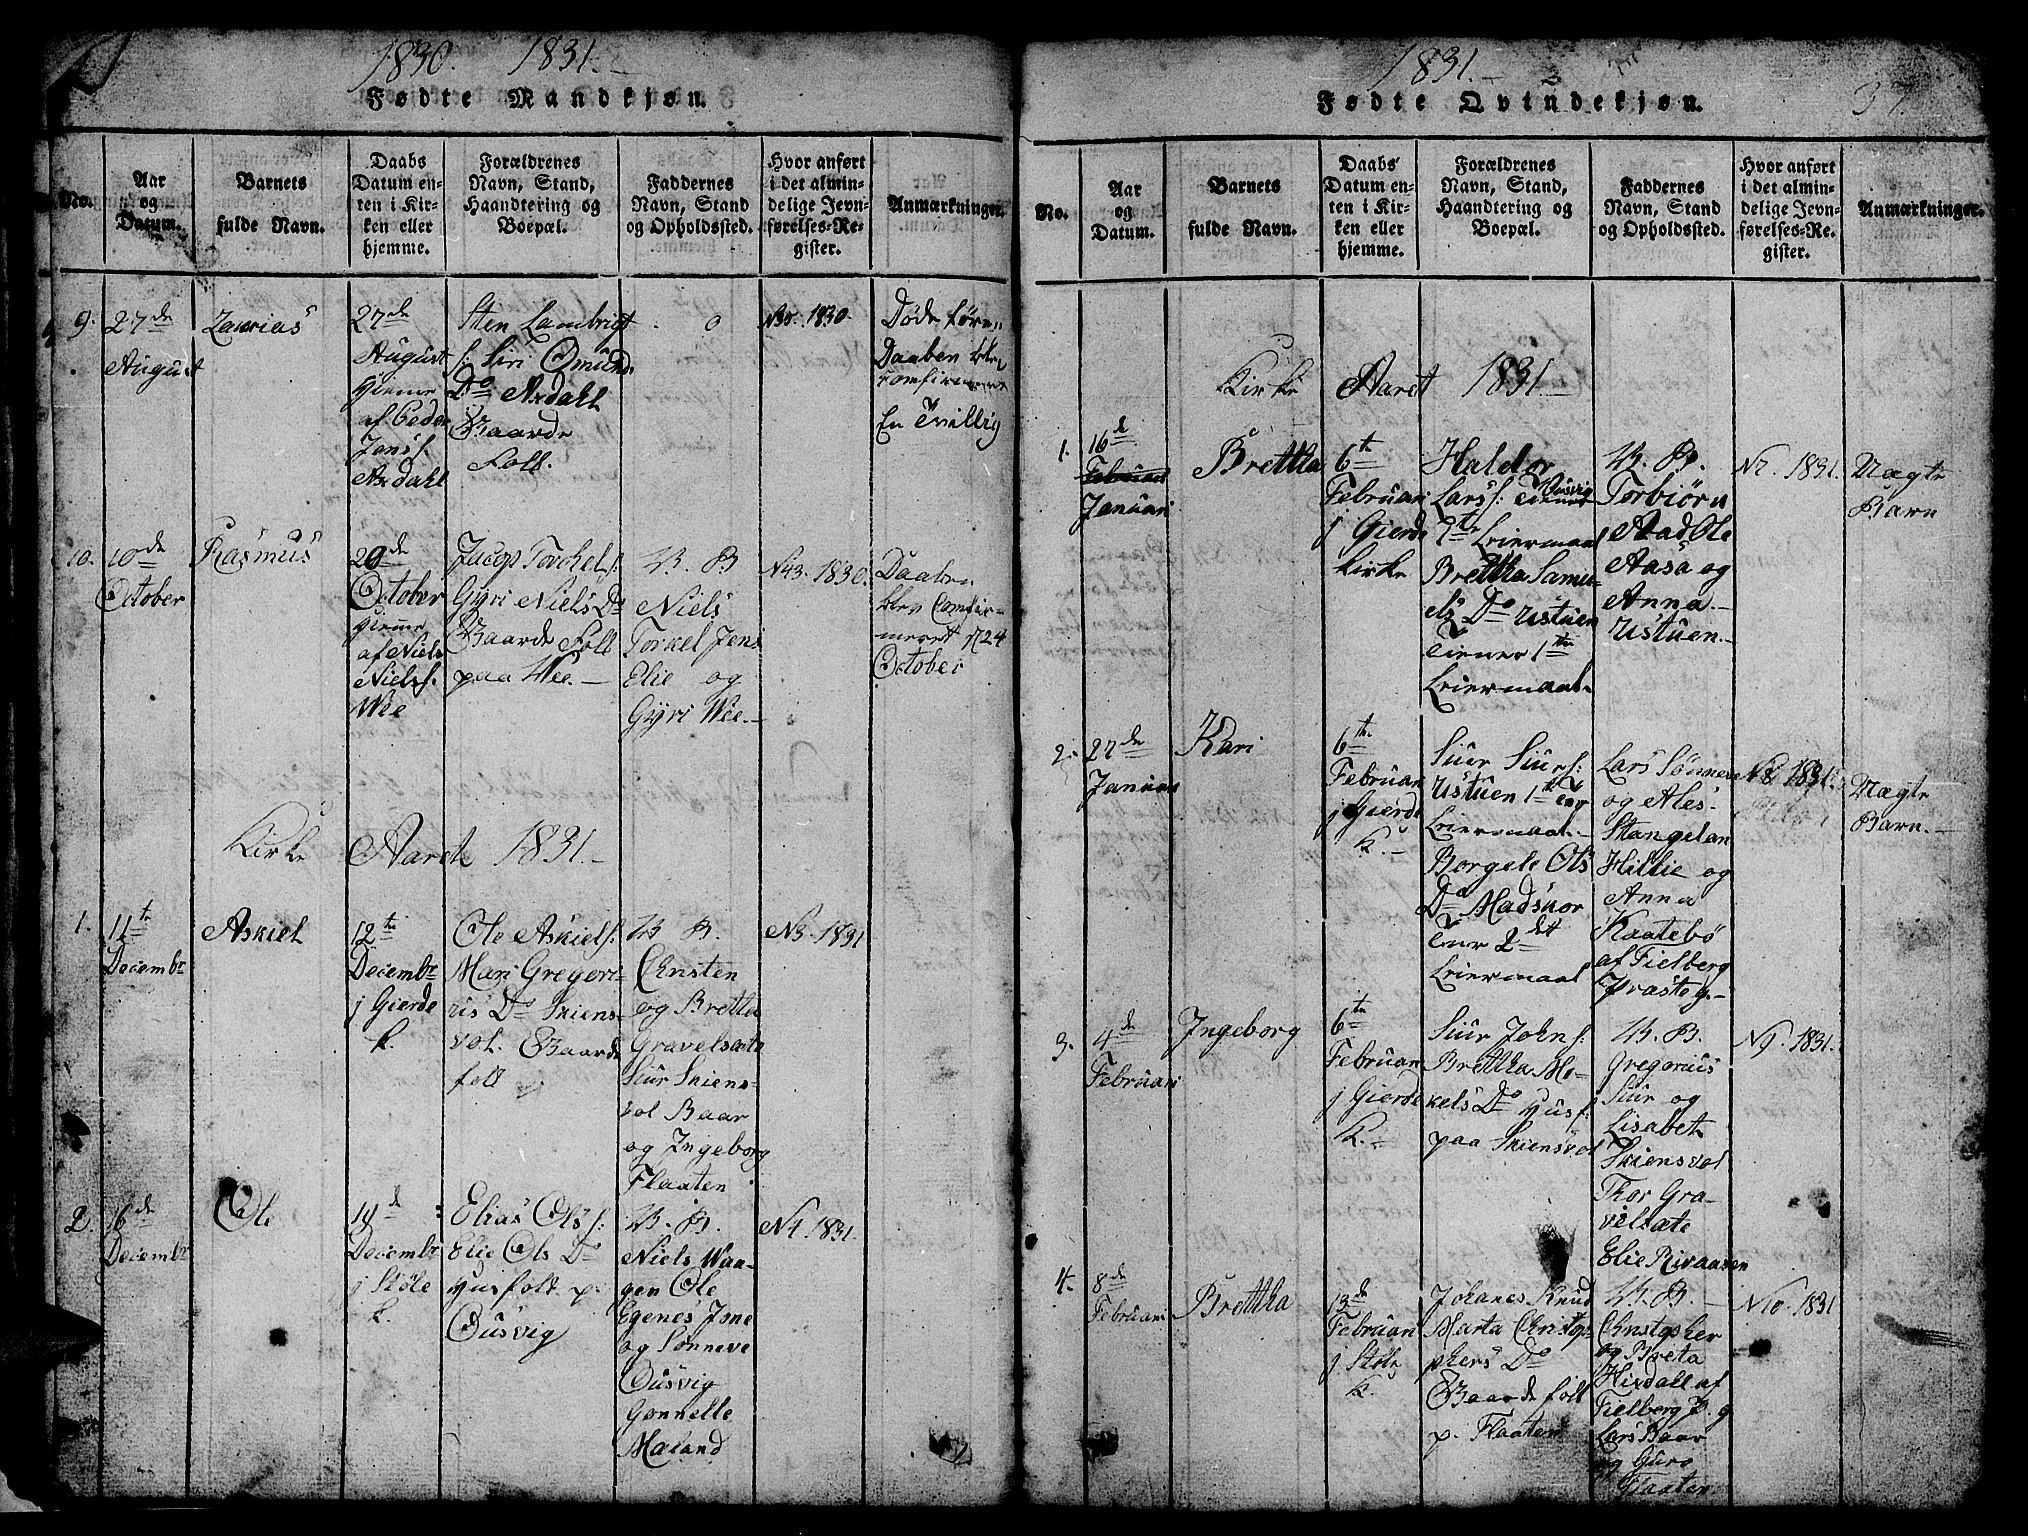 1830. 1831.
Fødte Mandkjøn.
No.
Aar
og
Datum.
Barnets
fulde Navn.
Daabs
Datum en-
ten i Kir-
ken eller
hjemme.
Forældrenes
Navn, Stand,
Haandtering og
Boepæl.
Faddernes
Navn, Stand
og Opholdssted.
Hvor anført
i det almin-
delige Jevn-
førelses-Re-
gister.
Anmærkninger.
9.
27de
August
Zakrias
27de
August
hieme
af Peder
Jens f.
Axdahl
Sten Lambrigt
f: Siri Omunds
Do Axdahl
Baarde
Foll.
0
1830
Døde føre
Daaben
En Tvillig
10.
10de
October
Rasmus
20de
October
hieme
af Niels
Niels f.
Wee
Jacop Torkels f.
Gyri Niels Do
Baarde Foll
paa Wee.
B. B.
Niels
Torkel Jens
Elie og
Gyri Wee.
N43. 1830.
Daaben
blev Comfir-
meret 24
October
Kirke Aaret 1831.
1.
11te
Decembr
Askiel
12te
Decembr
j Gierde
k.
Ole Askiels f.
Mari Gregori-
us Do Skiens-
vol. Baarde
foll
B. B.
Christen
og Bretta
Gravelsæte
Siur Skiens-
vol Baar
og Ingeborg
Flaaten
N3. 1831
2.
16de
Decembr
Ole
19de
Decembr
j Støle
k.
Elias Ols f:
Elie Ols Do
Husfolk p:
Ousvig
B. B.
Niels Waa-
gen Ole
Egenes Jone
og Sønneve
Ousvig
Gonnelle
Mæland
N4. 1831.
1831.
37.
Fødte Qvindekjøn.
No.
Aar
og
Datum.
Barnets
fulde Navn.
Daabs
Datum en-
ten i Kir-
ken eller
hjemme.
Forældrenes
Navn, Stand,
Haandtering og
Boepæl.
Faddernes
Navn, Stand
og Opholdssted.
Hvor anført
i det almin-
delige Jevn-
førelses-Re-
gister.
Anmærkninger.
Kirke Aaret 1831.
1.
16de
Februari
Januari
Brettha
6te
Februari
j Gierde
Kirke
Haldor
Lars f: Ousvig
Leiermaal
Brettha Samu-
els Do Ustuen
tiener 1te
Leiermaal.
B. B.
Torbiørn
Aad Ole
Aasa og
Anna
Ustuen.
N7. 1831.
Uægte
Barn
2.
27de
Januari
Kari
6te
Februari
j Gierde
K.
Siur Siurs f:
Ustuen 1te
Leiermaal.
Borgele Ols
Do Madsnor
2det
Leiermaal
Lars Sønneve
og Ales
Stangelan
Hillie og
Anna
Kaatebø
af Fielberg
Præsteg.
N8. 1831.
Uægte
Barn.
3.
4de
Februari
Ingeborg
6te
Februari
j Gierde
K.
Siur John f:
Brettha Mi-
kels Do Husf:
paa Skiensvol
B. B.
Gregorius
Siur og
Lisabet
Skiensvol
Thor Gra-
velsæte
Elie Rivaasen
N9. 1831.
4.
8de
Februari
Brettha
13de
Februari
j Støle
K.
Johanes Knud
Marta Christop-
hers Do
Baarde foll
p. Flaaten
B. B.
Christopher
og Breta
Hixdall af
Fielberg P. g
Lars Baar
og Guro
Flaaten
N10. 1831